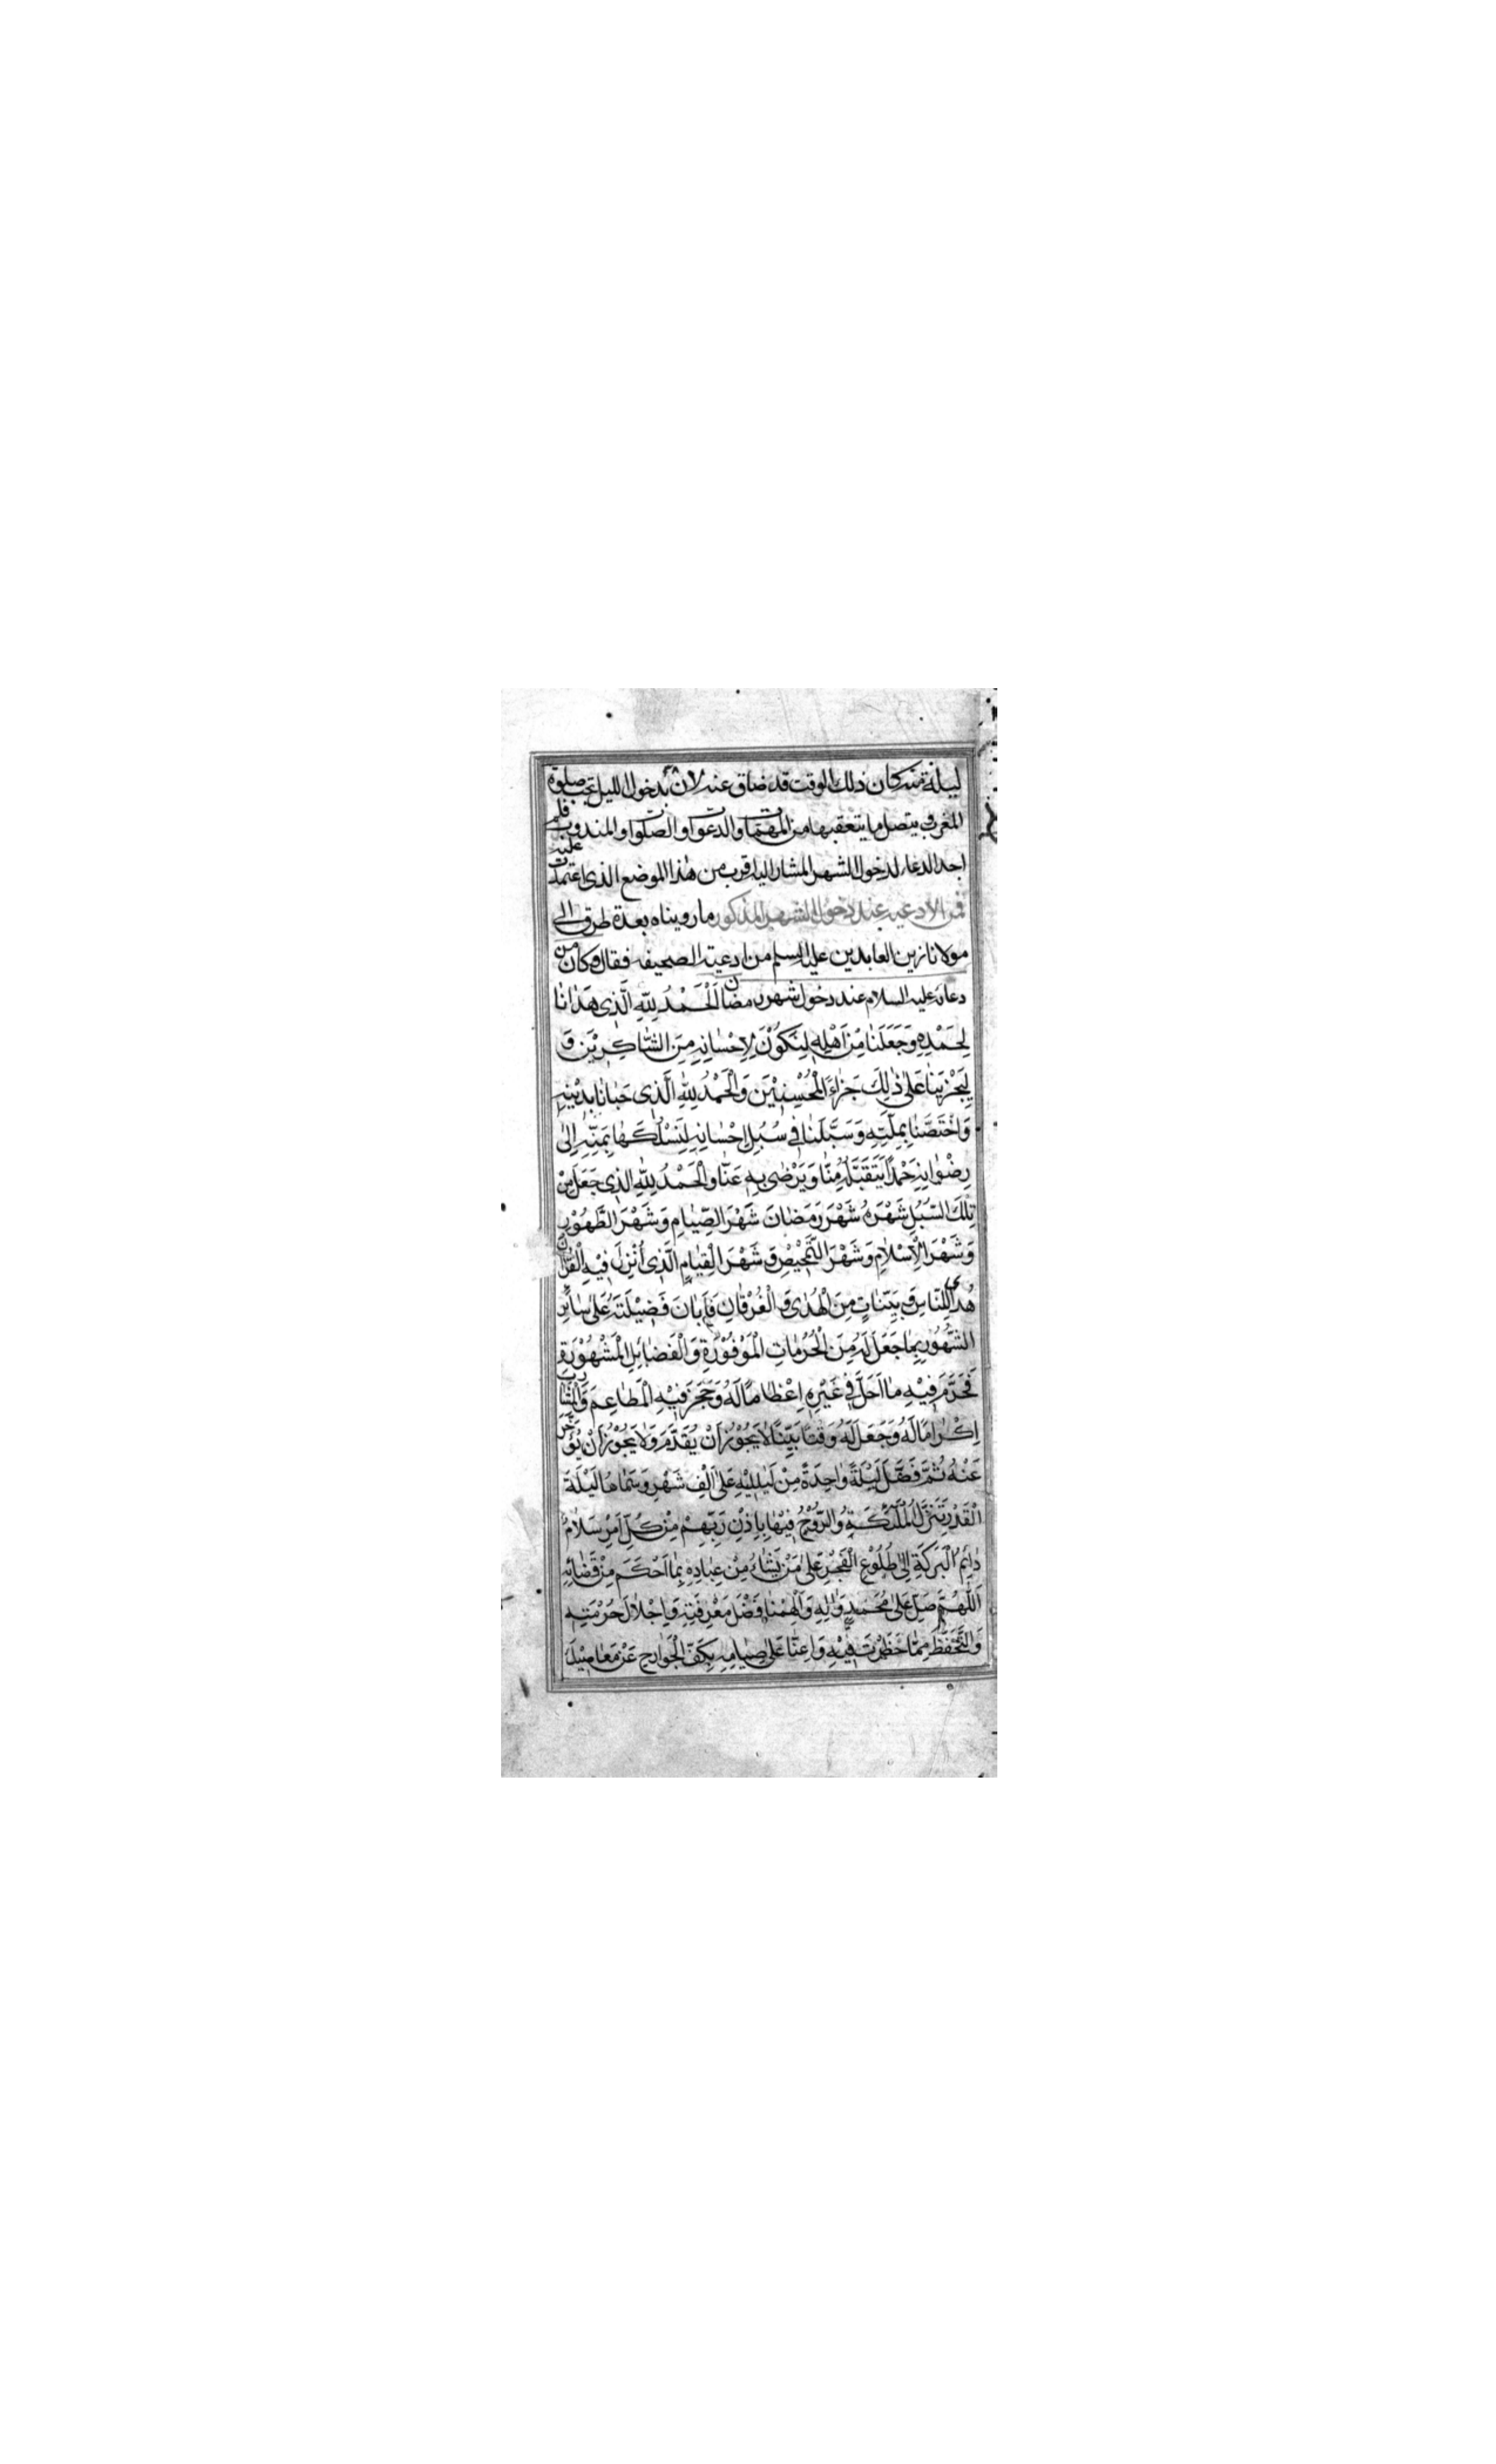 ليلة منه كان ذلك الوقت قد ضاق عنه لان بدخول الليل تجب صلوة
المغرب و يتصل ما يتعقبها من المهمات والدعوات والصلوات والمندوب فلم
اجد الدعاء لدخول الشهر المشار اليه اقرب من هذا الموضع الذى اعتمدت عليه
فمن الادعيه عند دخول الشهر المذكور ما رويناه بعدة طرق الى
مولانا زين العابدين عليه السلم من ادعية الصحيفه فقال وكان من
دعائه عليه السلام عند دخول شهر رمضان اَلْحَمْدُ لِلّٰهِ الَّذِى هَدٰانٰا
لِحَمْدِهِ وَجَعَلَنٰا مِنْ اَهْلِهِ لِنَكُوْنَ لِاِحْسٰانِهِ مِنَ الشّٰاكِرِيْنَ وَ
لِيَجْزِيَنٰا عَلٰى ذٰلِكَ جَزٰاءَ الْمُحْسِنِيْنَ وَالْحَمْدُ لِلّٰهِ الَّذِى حَبٰانٰا بِدِيْنِهِ
وَاخْتَصَّنٰا بِمِلَّتِهِ وَسَبَّلَنٰا فِى سُبُلِ اِحْسٰانِهِ لِنَسْلُكَهٰا بِمَنِّهِ اِلٰى
رِضْوٰانِهِ حَمْدًا يَتَقَبَّلُهُ مِنّٰا وَيَرْضٰى بِهِ عَنّٰا وَالْحَمْدُ لِلّٰهِ الَّذِى جَعَلَ مِنْ
تِلْكَ السُّبُلِ شَهْرَهُ شَهْرَ رَمَضٰانَ شَهْرَ الصِّيٰامِ وَشَهْرَ الطَّهُوْرِ
وَشَهْرَ الْاِسْلٰامِ وَشَهْرَ التَّمْحِيْصِ وَ شَهْرَ الْقِيٰامِ الَّذِى اُنْزِلَ فِيْهِ الْقُرْاٰنُ
هُدًى لِلنّٰاسِ وَ بَيِّنٰاتٍ مِنَ الْهُدٰى وَ الْفُرْقٰانِ فَاَبٰانَ فَضِيْلَتَهُ عَلٰى سٰائِرِ
الشُّهُوْرِ بِمٰا جَعَلَ لَهُ مِنَ الْحُرُمٰاتِ الْمَوْفُوْرَةِ وَالْفَضٰائِلِ الْمَشْهُوْرَةِ
فَحَرَّمَ فِيْهِ مٰا اَحَلَّ فِى غَيْرِهِ اِعْظٰامًا لَهُ وَحَجَرَ فِيْهِ الْمَطٰاعِمَ وَالْمَشٰارِبَ
اِكْرٰامًا لَهُ وَجَعَلَ لَهُ وَقْتًا بَيِّنًا لٰا يَجُوْزُ اَنْ يُقَدَّمَ وَلٰا يَجُوْزُ اَنْ يُؤَخَّرَ
عَنْهُ ثُمَّ فَضَّلَ لَيْلَةً وٰاحِدَةً مِنْ لَيٰالِيْهِ عَلٰى اَلْفِ شَهْرٍ وَسَمّٰاهٰا لَيْلَةَ
الْقَدْرِ تَنَزَّلُ الْمَلٰئِكَةُ وَالرُّوْحُ فِيْهٰا بِاِذْنِ رَبِّهِمْ مِنْ كُلِّ اَمْرٍ سَلٰامٌ
دٰائِمُ الْبَرَكَةِ اِلٰى طُلُوْعِ الْفَجْرِ عَلٰى مَنْ يَشٰاءُ مِنْ عِبٰادِهِ بِمٰا اَحْكَمَ مِنْ قَضٰائِهِ
اَللّٰهُمَّ صَلِّ عَلٰى مُحَمَّدٍ وَاٰلِهِ وَاَلْهِمْنٰا فَضْلَ مَعْرِفَتِهِ وَاِجْلٰالَ حُرْمَتِهِ
وَالتَّحَفُّظَ مِمّٰا حَظَرْتَ فِيْهِ وَاَعِنّٰا عَلٰى صِيٰامِهِ بِكَفِّ الْجَوٰارِحِ عَنْ مَعٰاصِيْكَ